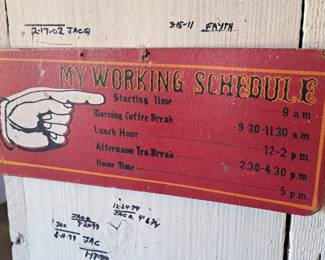 2-17-02 JACQ
3-15-11 FAYTH
MY WORKING SCHEDULE
Starting Time 9 a.m.
Morning Coffee Break 9.30-11.30 a.m.
Lunch Hour 12-2 p.m.
Afternoon Tea Break 2.30-4.30 p.m.
Home Time 5 p.m.
12-24-99
JACQ
JAC
JAC